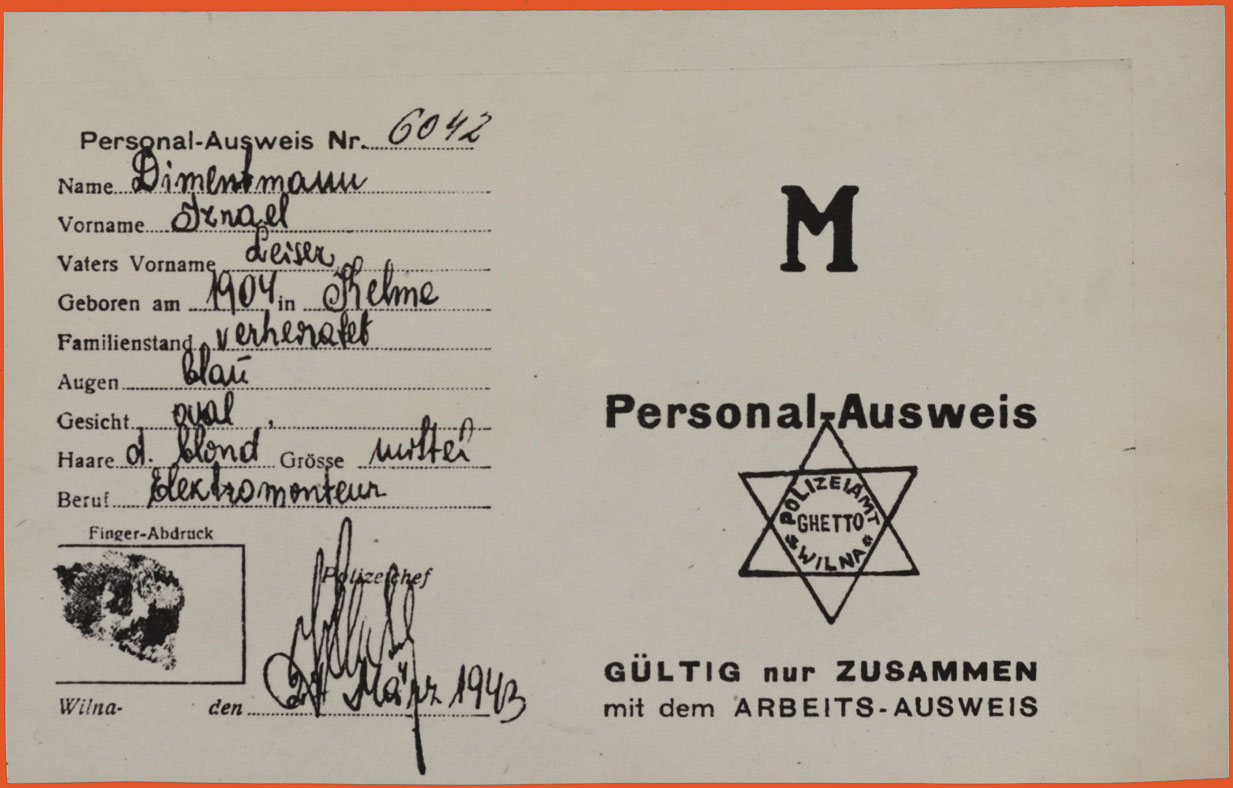 Personal-Ausweis Nr. 6042
Name Dimentmann
Vorname Israel
Vaters Vorname Leiser
Geboren am 1904 in Kelme
Familienstand verheiratet
Augen blau
Gesicht oval,
Haare d. blond Grösse mittel
Beruf Elektromonteur
Finger-Abdruck
Polizeichef
Wilna- den 24 März 1943
M
Personal-Ausweis
POLIZEIAMT
GHETTO
WILNA
GÜLTIG nur ZUSAMMEN
mit dem ARBEITS-AUSWEIS